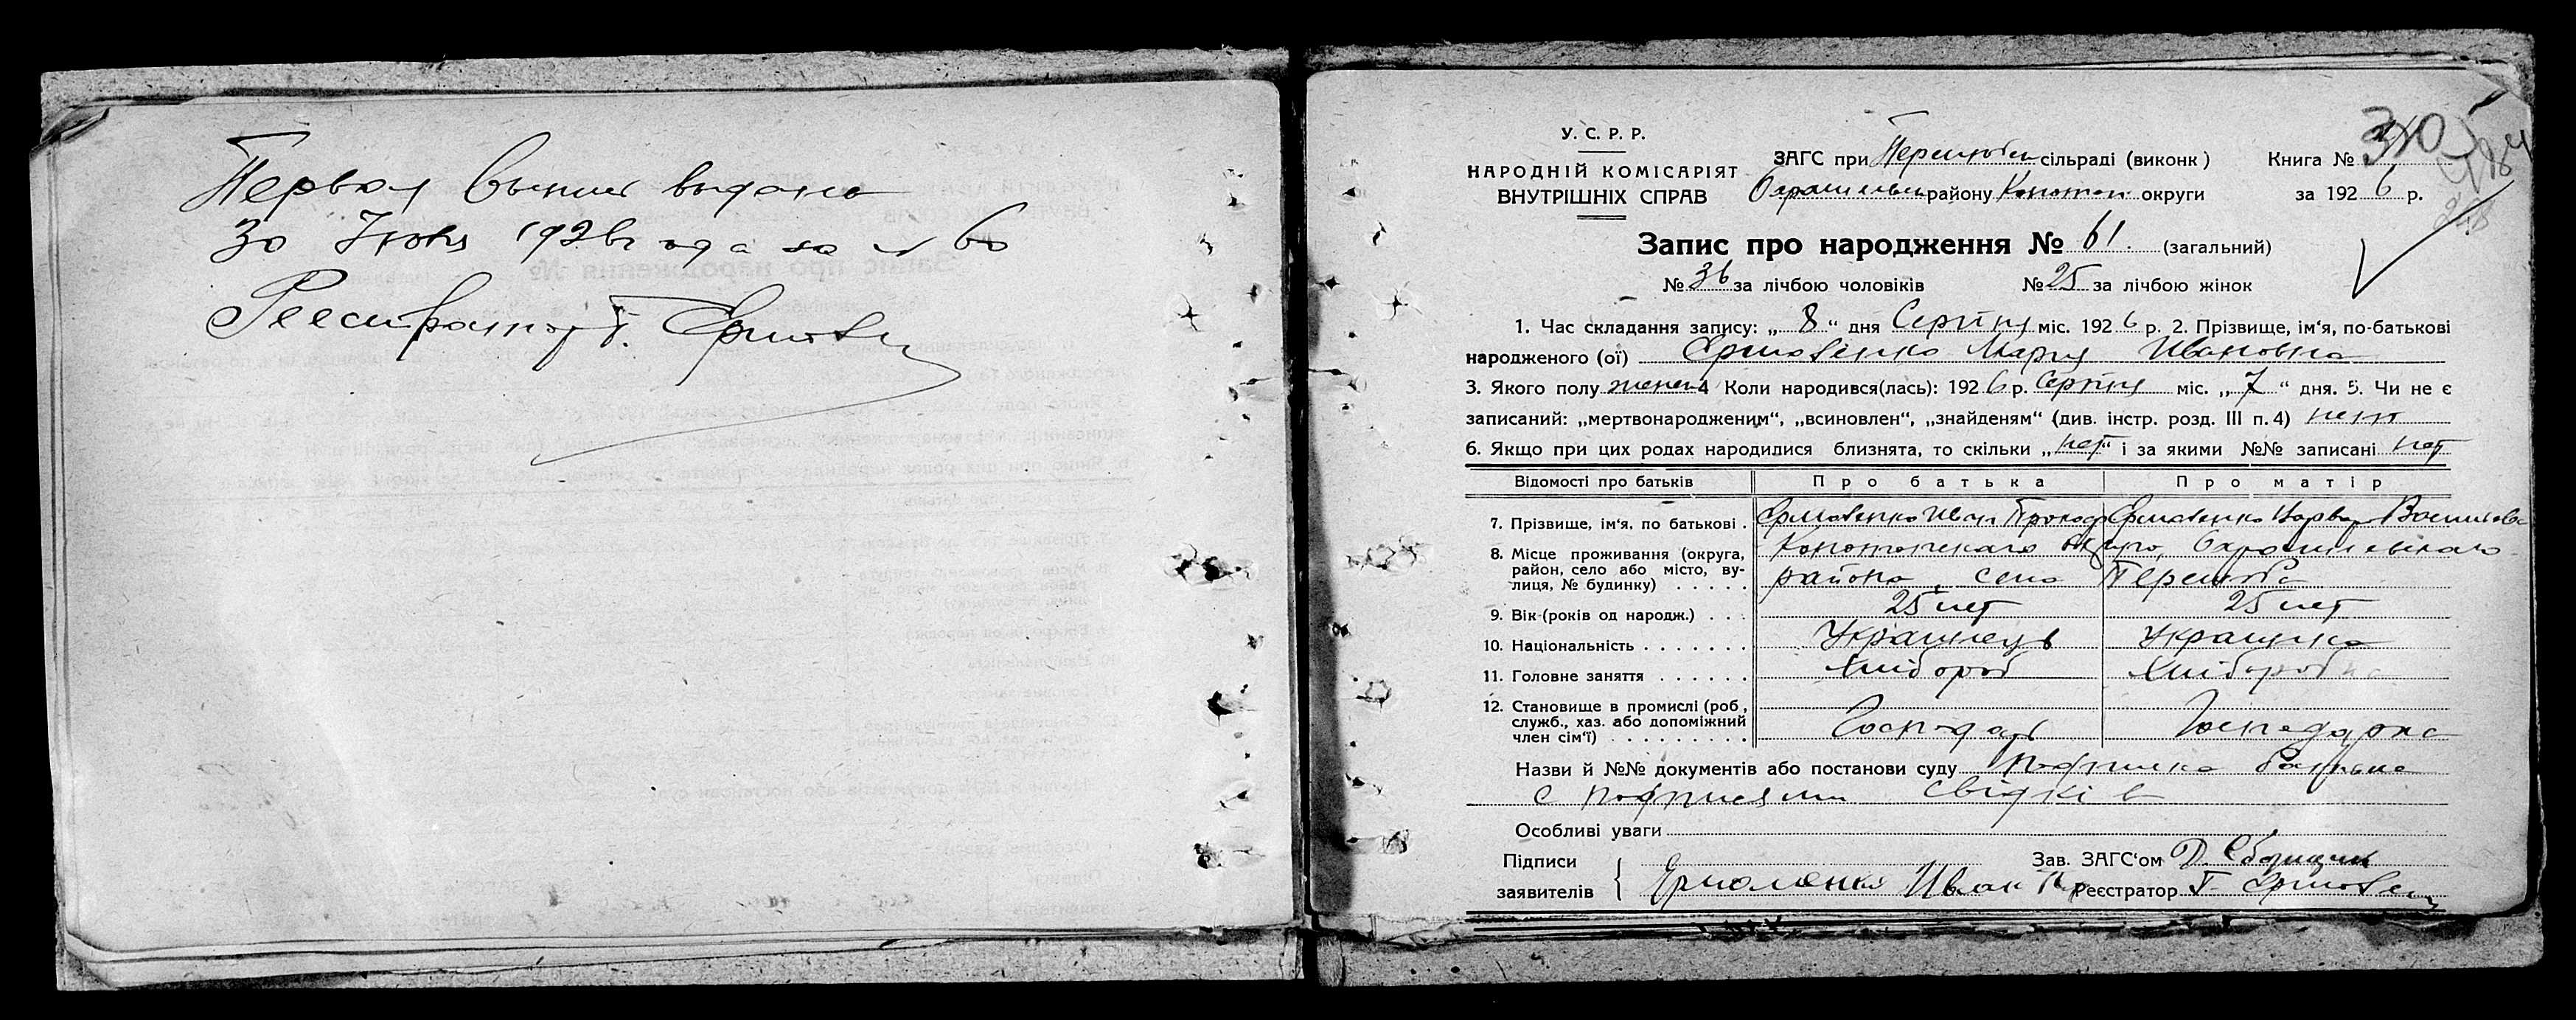 Первая выпись выдана
30 Июня 1926 года за № 60
Реестратор Г.
У. С. Р. Р.
НАРОДНІЙ КОМІСАРІЯТ
ВНУТРІШНІХ СПРАВ
ЗАГС при сільраді (виконк)
району Конотоп округи
Книга № 310
за 1926 р.
Запис про народження № 61. (загальний)
№ 36 за лічбою чоловіків № 25 за лічбою жінок
1. Час складання запису: „ 8 “ дня Серпня міс. 1926 р. 2. Прізвище, ім‘я, по-батькові
народженого (ої) Ермоленко Мария Ивановна
3. Якого полу женск 4 Коли народився(лась): 1926 р. Серпня міс. „ 7 “ дня. 5. Чи не є
записаний: „мертвонародженим“, „всиновлен“, „знайденям“ (див. інстр. розд. III п. 4) нет
6. Якщо при цих родах народилися близнята, то скільки „нет“ і за якими №№ записані нет
Відомості про батьків Про батька Про матір
7. Прізвище, ім‘я, по батькові . Ермоленко Иван Ермоленко Варвара
8. Місце проживання (округа, район, село або місто, вулиця, № будинку) . . . . . Конотопскаго округа,
района, село
9. Вік (років од народж.) . . . 25 лет 25 лет
10. Національність . . . . . . . Украинець Украинка
11. Головне заняття . . . . . . Хлібороб Хліборобка
12. Становище в промислі (роб, служб., хаз. або допоміжний член сім‘ї) . . . . . . . . . Господарь Господарка
Назви й №№ документів або постанови суду батька
с подписями свідків
Особливі уваги
Підписи
заявителів { Ермоленко Иван
Зав. ЗАГС‘ом Д.
Реєстратор Г.